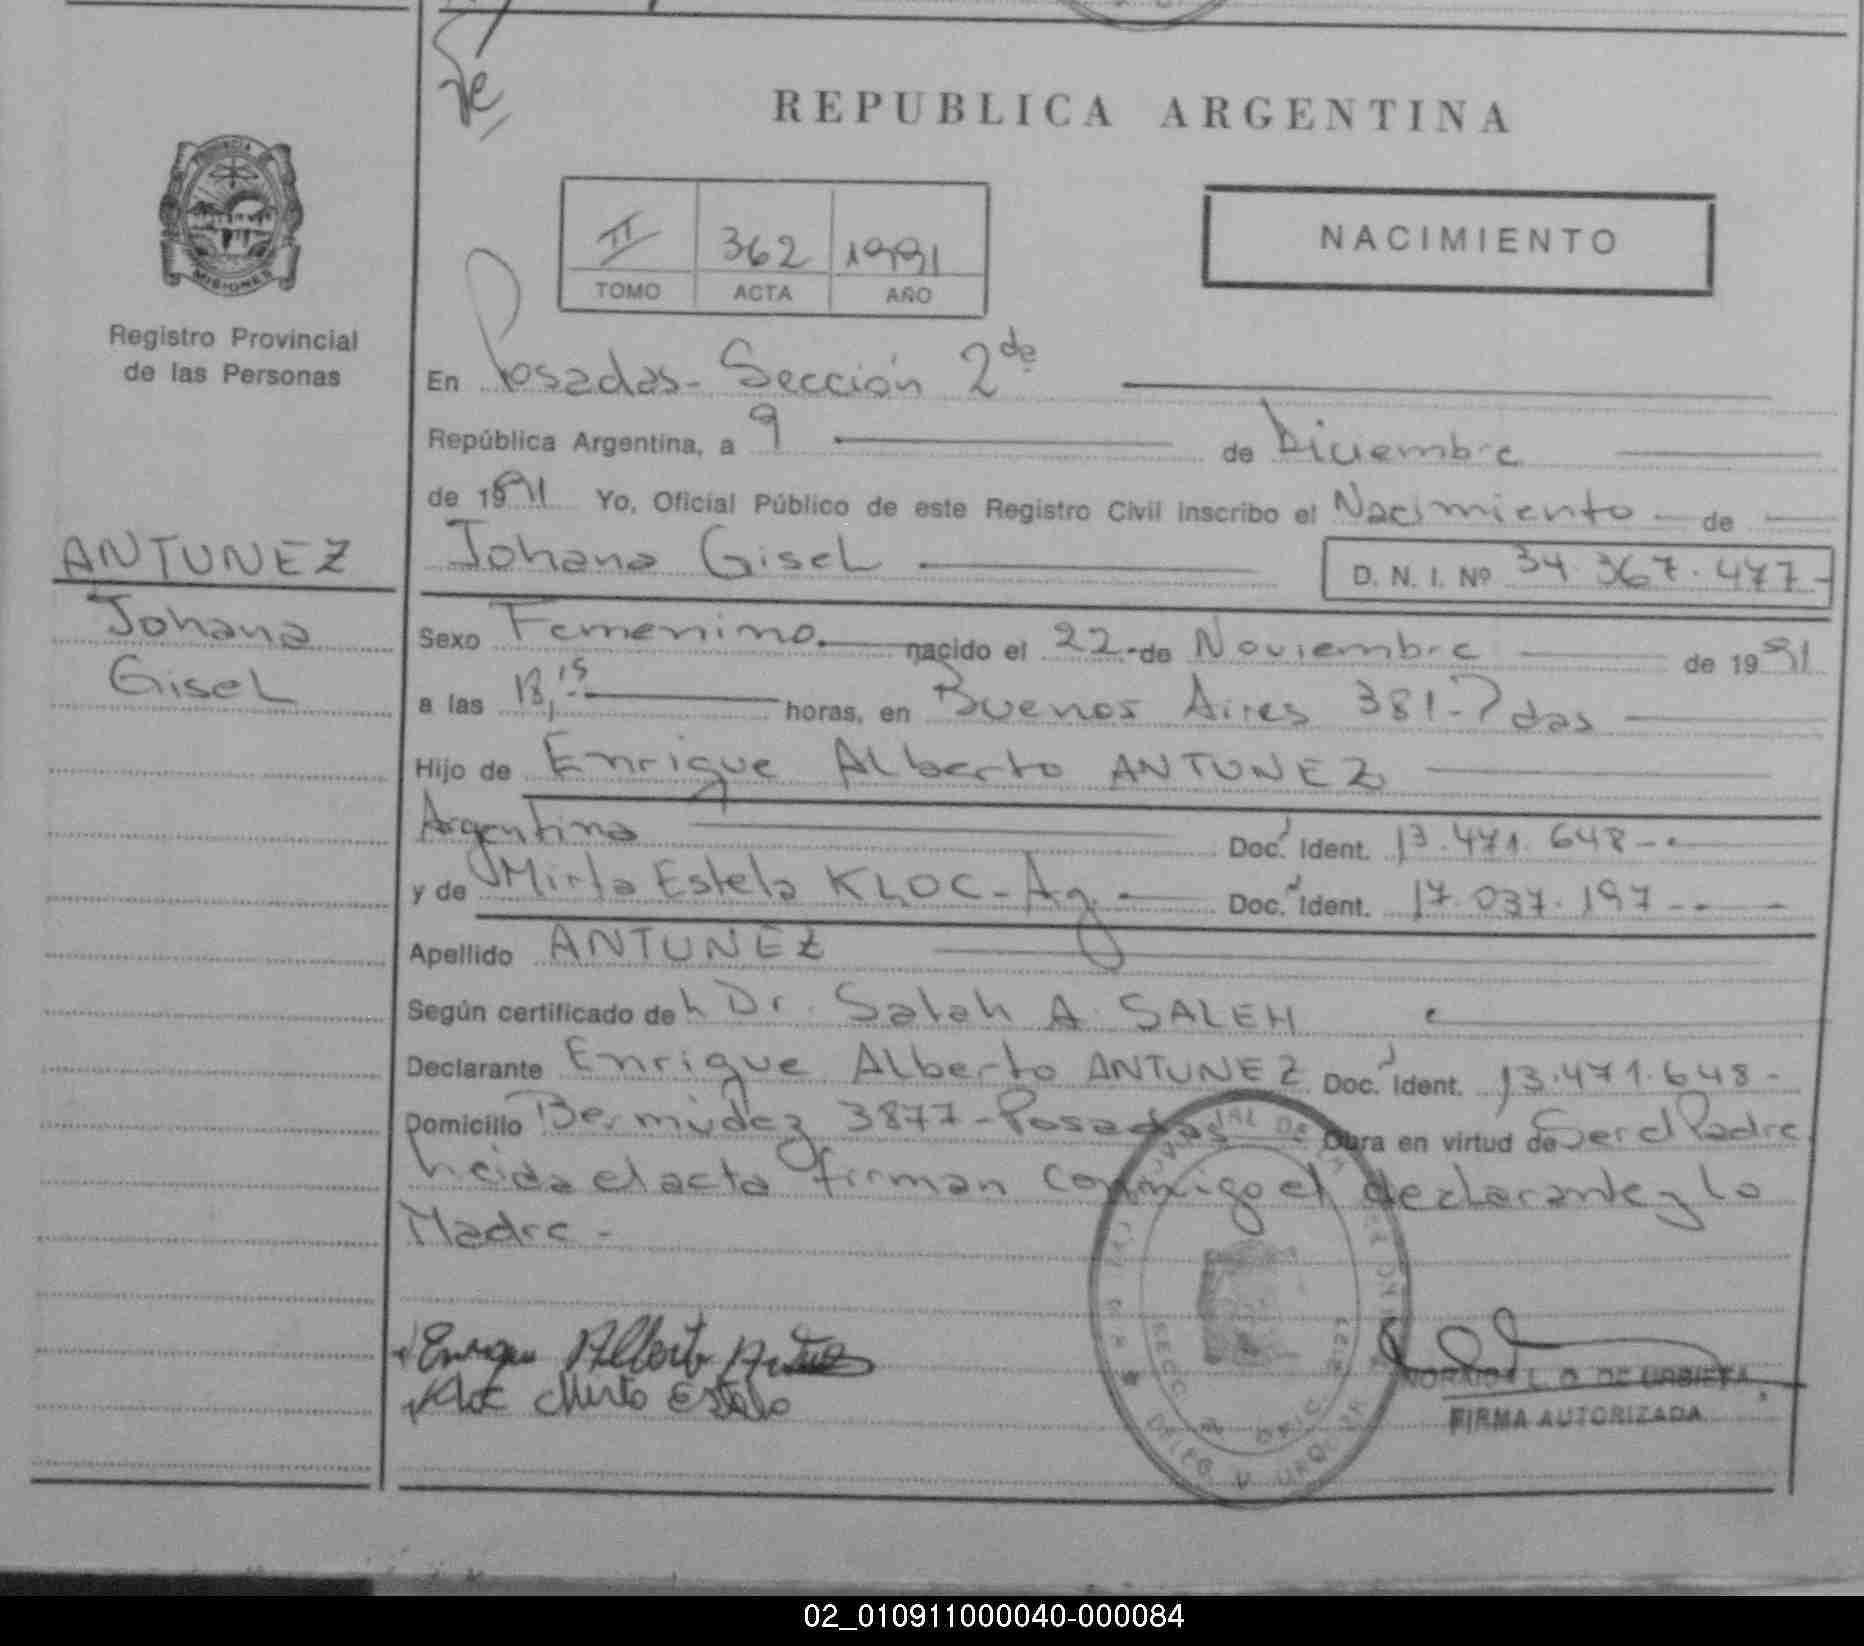 REPUBLICA ARGENTINA
PROVINCIA DE
MISIONES
Registro Provincial
de las Personas
II 362 1991
TOMO ACTA AÑO
NACIMIENTO
En Posadas- Sección 2da
República Argentina, a 9 de Diciembre
de 1991 Yo, Oficial Público de este Registro Civil inscribo el Nacimiento de
ANTUNEZ
Johana
Gisel
Johana Gisel D. N. I. Nº 34.367.477-
Sexo Femenino. nacido el 22-de Noviembre de 1991
a las horas, en Buenos Aires 381-Pdas
Hijo de Enrique Alberto ANTUNEZ
Argentina Doc. Ident. 13.471.648-
y de Mirta Estela KLOC-Ag. Doc. Ident. 17.037.197--
Apellido ANTUNEZ
Según certificado del Dr. Salah A. SALEH
Declarante Enrique Alberto ANTUNEZ Doc. Ident. 13.471.648-
Domicilio Bermúdez 3877-Posadas Obra en virtud de Ser el Padre
Leida el acta firman conmigo el declarante y la
Madre-
Enrique Alberto Antunez
Kloc Mirta Estela
L. O. DE URBIETA
FIRMA AUTORIZADA
02_010911000040-000084